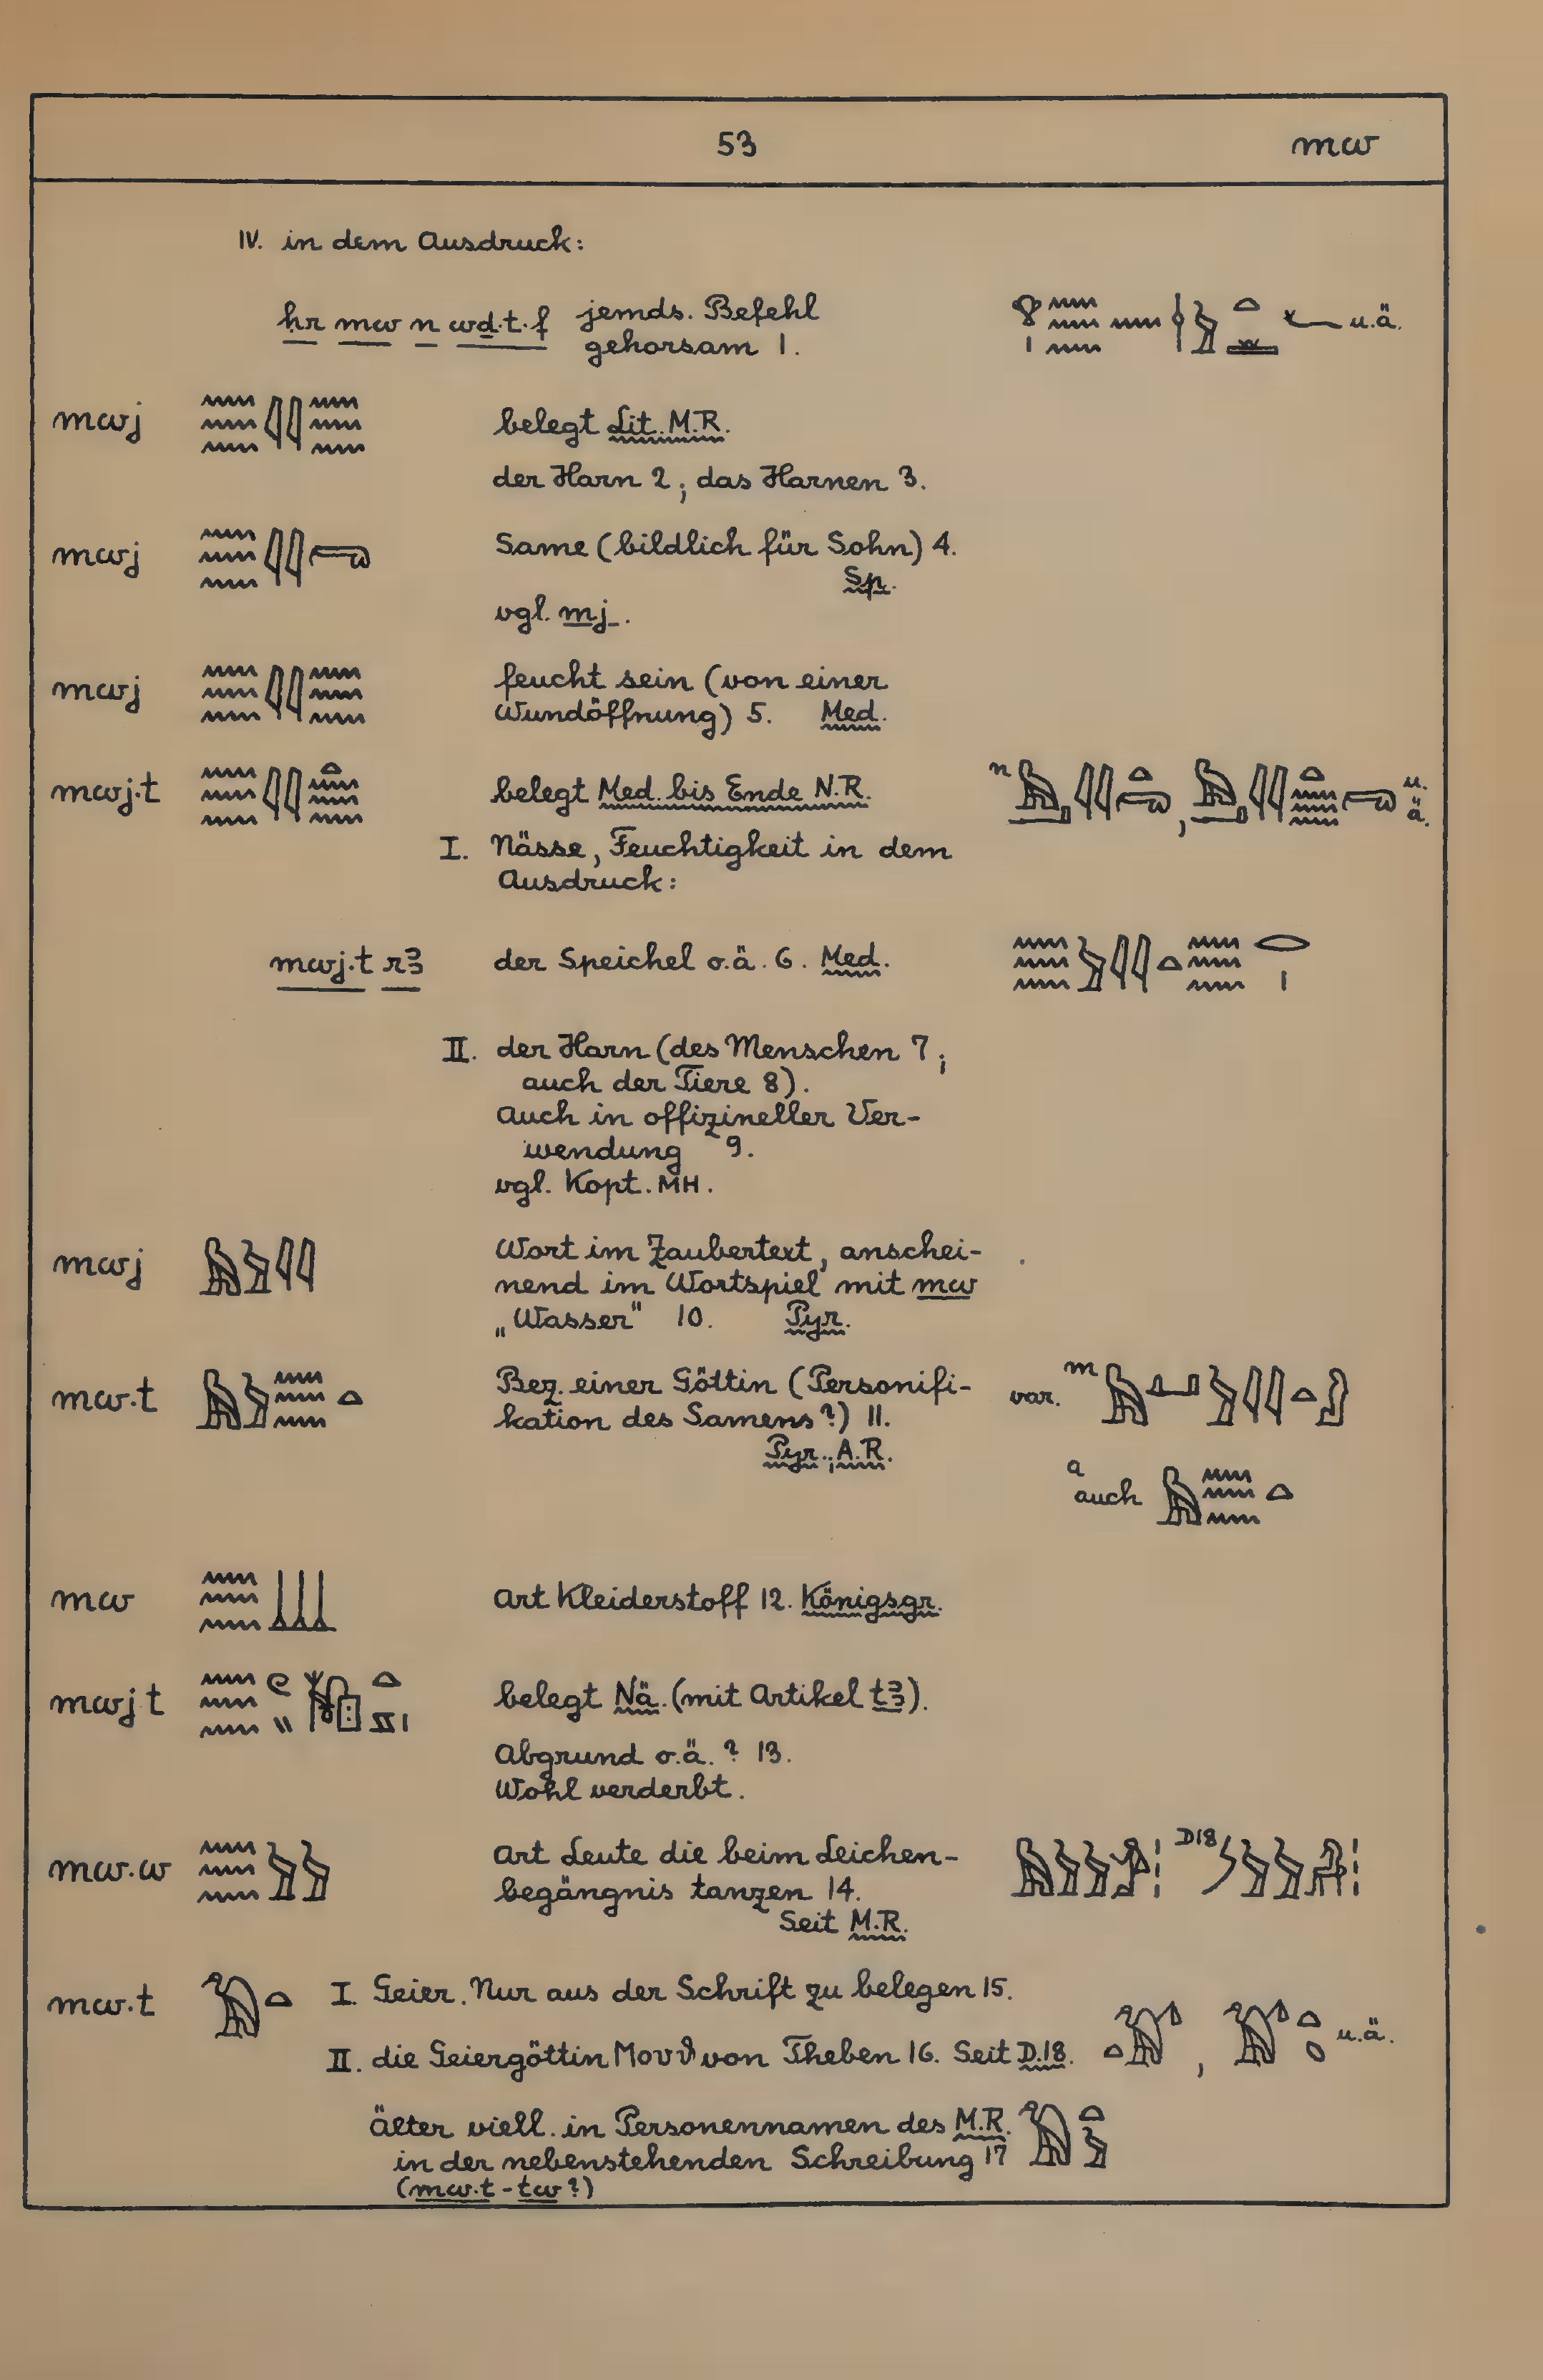 53 mw
IV. in dem Ausdruck:
ḥr mw n wḏ.t.f jemds. Befehl
gehorsam 1. u.ä.
mwj belegt Lit. M.R.
der Harn 2; das Harnen 3.
mwj Same (bildlich für Sohn) 4.
Sp.
vgl. mj_.
mwj feucht sein (von einer
Wundöffnung) 5. Med.
mwj.t belegt Med. bis Ende N.R. n , u.
ä.
I. Nässe, Feuchtigkeit in dem
Ausdruck:
mwj.t rꜣ der Speichel o.ä. 6. Med.
II. der Harn (des Menschen 7;
auch der Tiere 8).
Auch in offizineller Ver-
wendung 9.
vgl. Kopt. ΜΗ.
mwj Wort im Zaubertext, anschei-
nend im Wortspiel mit mw
„Wasser" 10. Pyr.
mw.t Bez. einer Göttin (Personifi- var. m
kation des Samens?) 11.
Pyr.; A.R.
a
auch
mw Art Kleiderstoff 12. Königsgr.
mwj.t belegt Nä. (mit Artikel tꜣ).
Abgrund o.ä. ? 13.
Wohl verderbt.
mw.w Art Leute die beim Leichen- D18
begängnis tanzen 14.
Seit M.R.
mw.t I. Geier. Nur aus der Schrift zu belegen 15.
II. die Geiergöttin Μουθ von Theben 16. Seit D.18. , u.ä.
älter viell. in Personennamen des M.R.
in der nebenstehenden Schreibung 17
(mw.t-tw?)